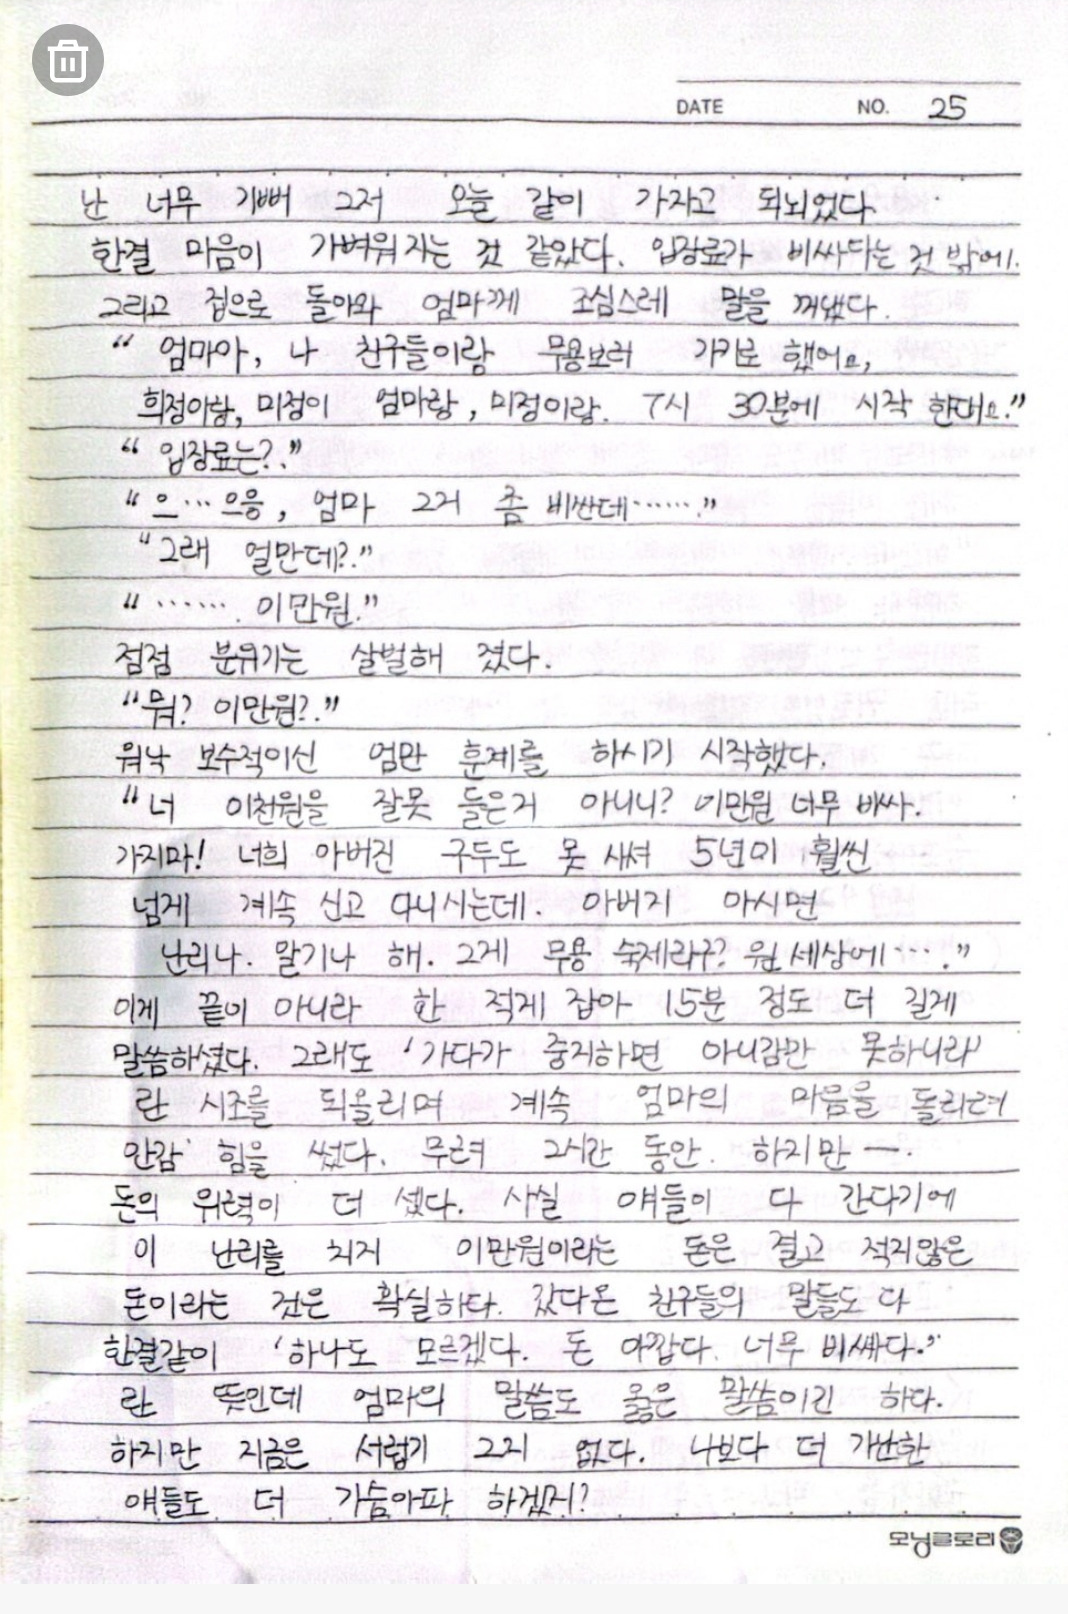 DATE NO. 25
난 너무 기뻐 그저 오늘 같이 가자고 되뇌었다.
한결 마음이 가벼워 지는 것 같았다. 입장료가 비싸다는 것 밖에.
그리고 집으로 돌아와 엄마께 조심스레 말을 꺼냈다.
“ 엄마아, 나 친구들이랑 무용보러 가기로 했어요,
희정이랑, 미정이 엄마랑, 미정이랑. 7시 30분에 시작 한대요.”
“ 입장료는?.”
“ 으… 으응, 엄마 그거 좀 비싼데…….”
“그래 얼만데?.”
“ ……. 이만원.”
점점 분위기는 살벌해 졌다.
“뭐? 이만원?.”
워낙 보수적이신 엄만 훈계를 하시기 시작했다.
“너 이천원을 잘못 들은거 아니니? 이만원 너무 비싸.
가지마! 너희 아버진 구두도 못 사셔 5년이 훨씬
넘게 계속 신고 다니시는데. 아버지 아시면
난리나. 말기나 해. 그게 무용 숙제라구? 원 세상에….”
이게 끝이 아니라 한 적게 잡아 15분 정도 더 길게
말씀하셨다. 그래도 ‘가다가 중지하면 아니감만 못하니라’
란 시조를 되올리며 계속 엄마의 마음을 돌리려
안감 힘을 썼다. 무려 2시간 동안. 하지만 ..
돈의 위력이 더 셌다. 사실 얘들이 다 간다기에
이 난리를 치지 이만원이라는 돈은 결코 적지않은
돈이라는 것은 확실하다. 갔다온 친구들의 말들도 다
한결같이 ‘하나도 모르겠다. 돈 아깝다. 너무 비싸다.’
란 뜻인데 엄마의 말씀도 옳은 말씀이긴 하다.
하지만 지금은 서럽기 그지 없다. 나보다 더 가난한
얘들도 더 가슴아파 하겠지?
모닝글로리